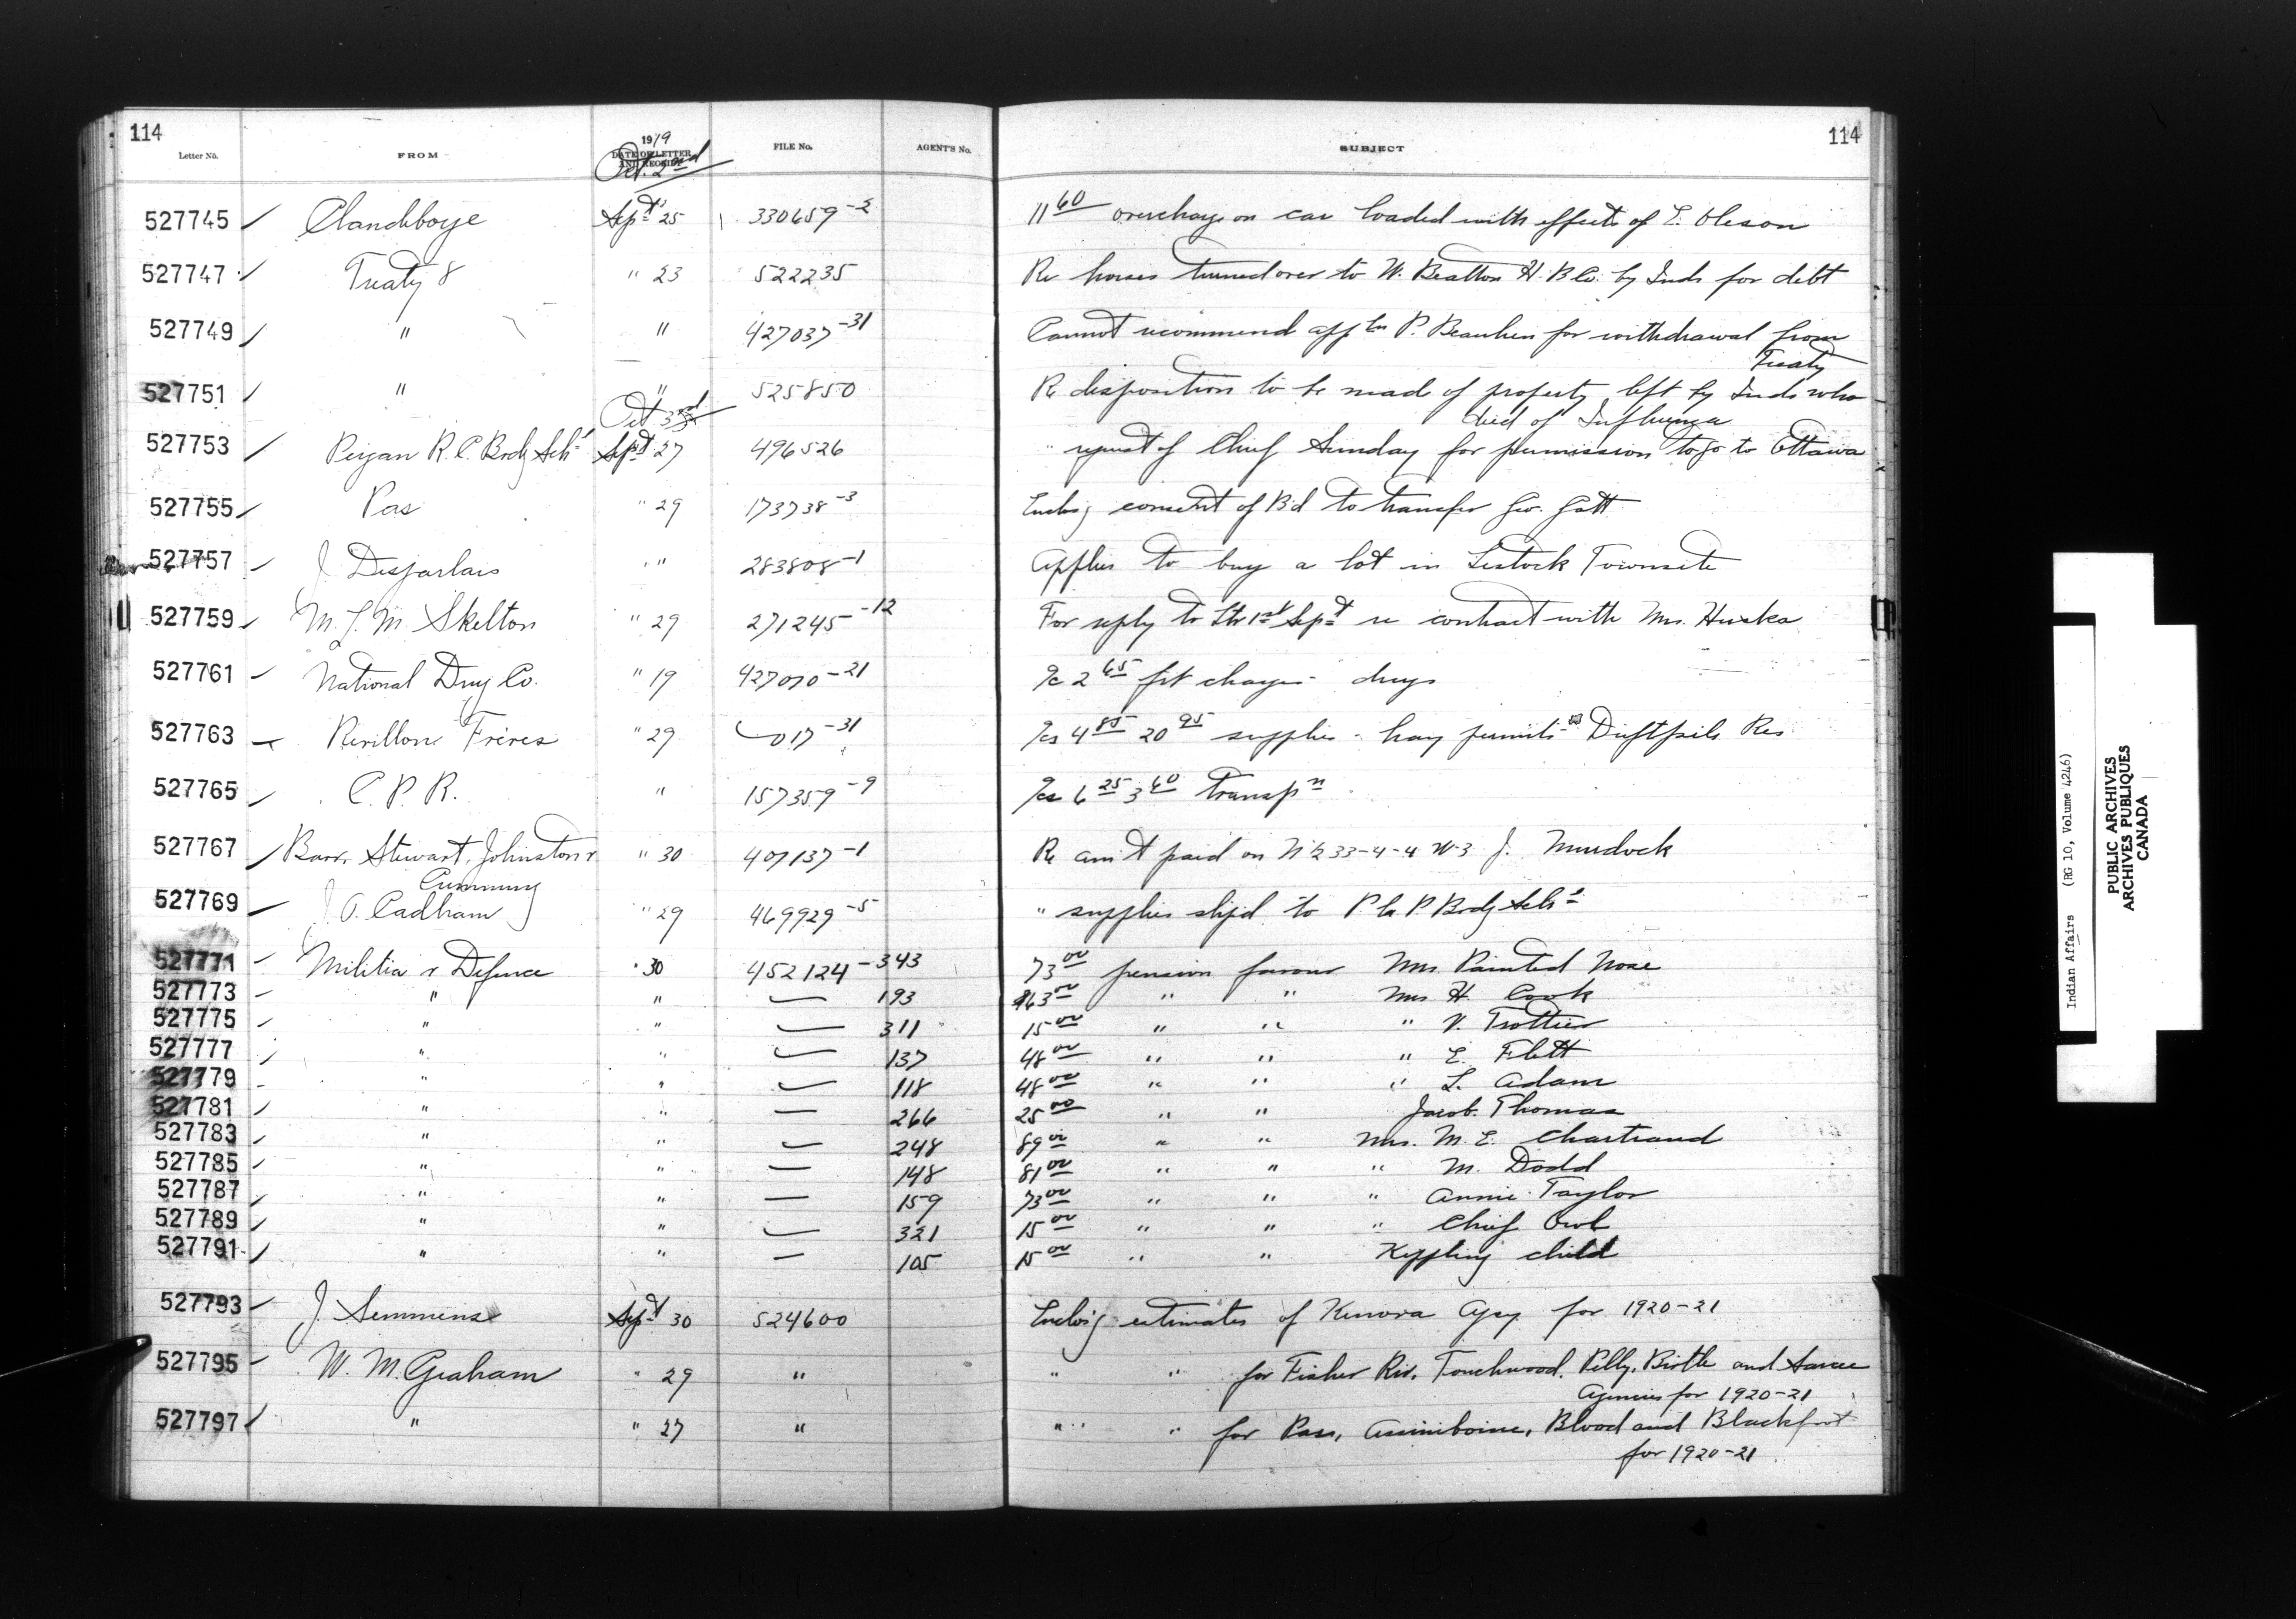 114
114
Letter No.
FROM
1919
DATE OF LETTER AND RECEIPT
FILE No.
AGENT'S No.
SUBJECT
Oct. 2nd
527745 Clandeboye Sept 25 330659-2 11 60 overcharge on car loaded with effects of E. Oleson
527747 Treaty 8 " 23 522235 Re horses turned over to W. Beatton H.B.Co. by Inds for debt
527749 " " 427037-31 Cannot recommend appln P. Beaulieu for withdrawal from
Treaty
527751 " " 525850 Re disposition to be made of property left by Inds who
died of Influenza
Oct 3rd
527753 Peigan R.C. Brdg Schl Sept 27 496526 " request of Chief Sunday for permission to go to Ottawa
527755 Pas " 29 173738-3 Enclosg consent of Bd to transfer Geo. Gott
527757 J. Desjarlais " " 283808-1 Applies to buy a lot in Lestock Townsite
527759 M.L.M. Skelton " 29 271245-12 For reply to ltr 1st Sept re contract with Mrs. Huska
527761 National Drug Co. " 19 427070-21 a/c 2 65 frt charges - drugs
527763 Revillon Freres " 29 017-31 a/cs 4 85 20 95 supplies - hay permits Driftpile Res
527765 C.P.R. " 157359-9 a/cs 6 25 3 60 transpn
527767 Barr, Stewart, Johnston & " 30 407137-1 Re am't paid on N 1/2 33-4-4 W3 J. Murdock
Cumming
527769 J.O. Cadham " 29 469929-5 " supplies shipd to P. la P. Brdg Schl
527771 Militia & Defence " 30 452124-343 73 00 pension favour Mrs Painted Nose
527773 " " 193 63 00 " " Mrs H. Cook
527775 " " 311 15 00 " " " V. Trottier
527777 " " 137 48 00 " " " E. Flett
527779 " " 118 48 00 " " " L. Adam
527781 " " 266 25 00 " " Jacob Thomas
527783 " " 248 89 00 " " Mrs. M.E. Chartrand
527785 " " 148 81 00 " " " M. Dodd
527787 " " 159 73 00 " " " Annie Taylor
527789 " " 321 15 00 " " " Chief Owl
527791 " " 105 15 00 " " Keppling child
527793 J. Semmens Sept 30 524600 Enclosg estimates of Kenora Agcy for 1920-21
527795 W. M. Graham " 29 " " " for Fisher Riv, Touchwood, Pelly, Birtle and Sarcee
Agencies for 1920-21
527797 " " 27 " " " for Pas, Assiniboine, Blood and Blackfoot
for 1920-21
Indian Affairs (RG 10, Volume 4246)
PUBLIC ARCHIVES
ARCHIVES PUBLIQUES
CANADA